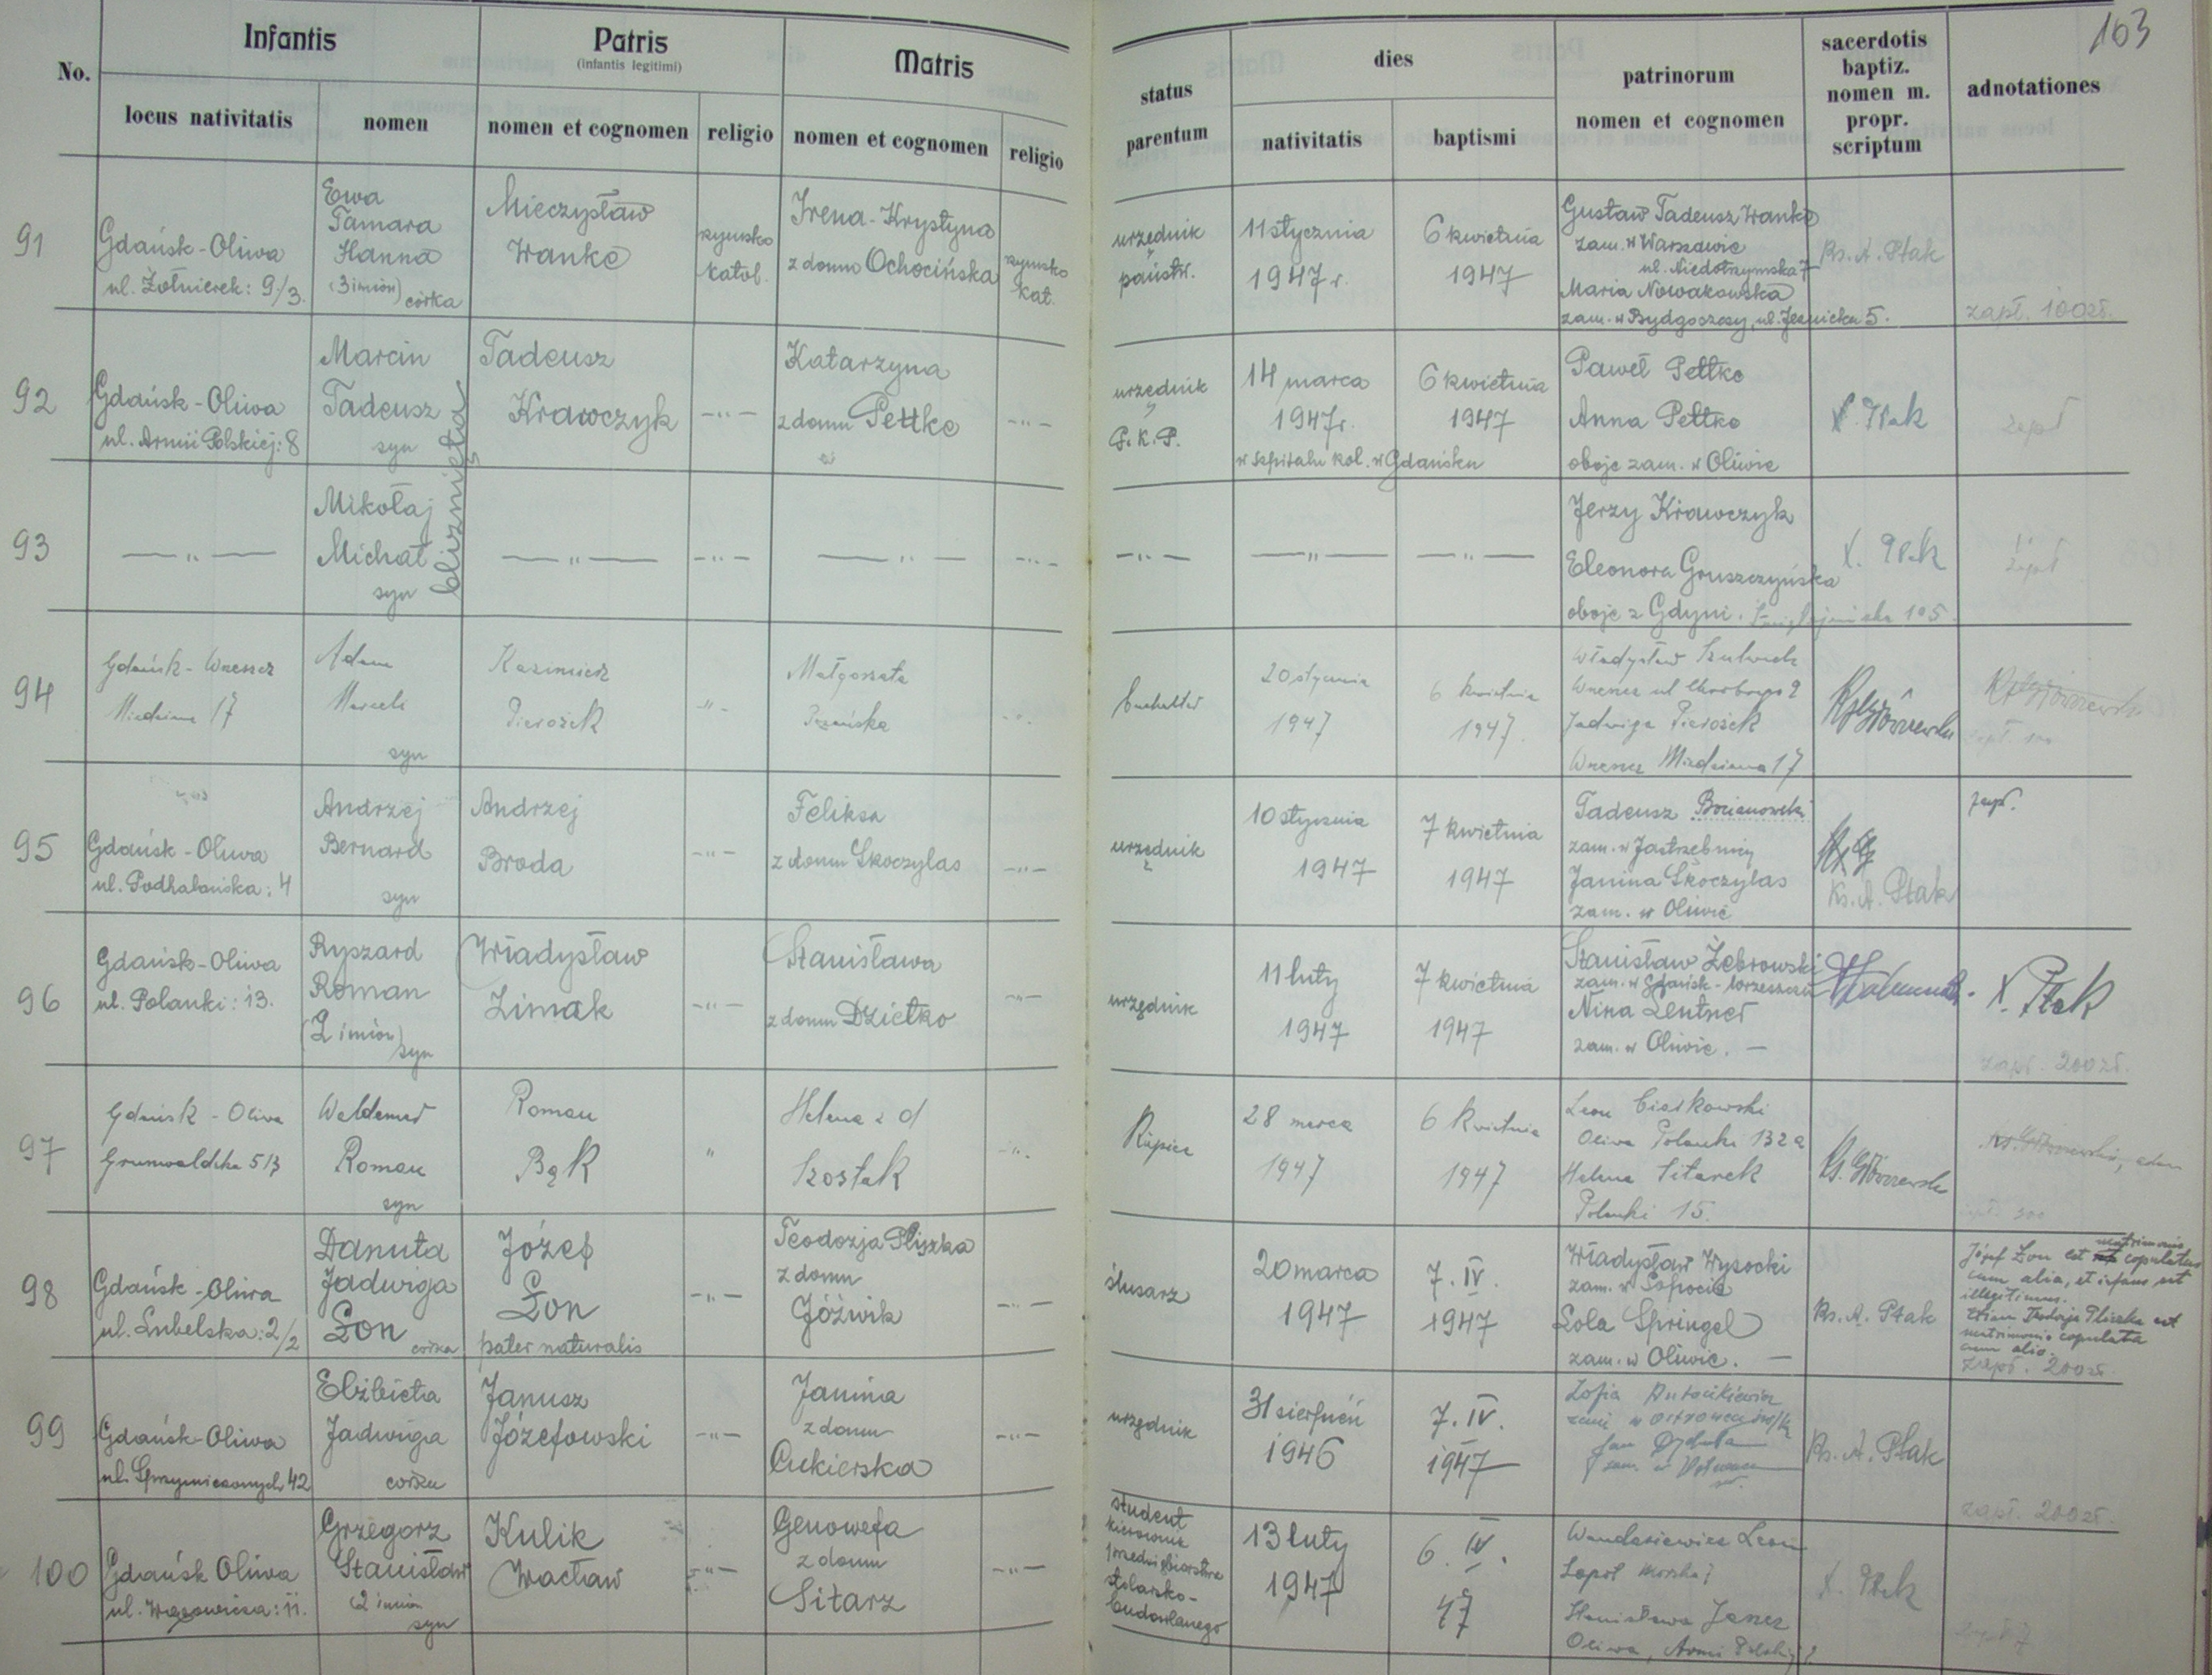 103
No.
Infantis
Patris
(infantis legitimi)
Matris
locus nativitatis
nomen
nomen et cognomen
religio
nomen et cognomen
religio
status
parentum
dies
nativitatis
baptismi
patrinorum
nomen et cognomen
sacerdotis
baptiz.
nomen m.
propr.
scriptum
adnotationes
91
Gdańsk-Oliwa
ul. Żołnierek: 9/3.
Ewa
Tamara
Hanna
(3 imion) córka
Mieczysław
Wanke
rzymsko
katol.
Irena-Krystyna
z domu Ochocińska
rzymsko
kat.
urzędnik
państw.
11 stycznia
1947 r.
6 kwietnia
1947
Gustaw Tadeusz Wanke
zam. w Warszawie
ul. 7
Maria Nowakowska
zam. w Bydgoszczy, ul. 5.
Ks. A. Ptak
zapł. 100 zł.
92
Gdańsk-Oliwa
ul. Armii Polskiej: 8
Marcin
Tadeusz
syn
bliźnięta
Tadeusz
Krawczyk
-"-
Katarzyna
z domu Pettke
-"-
urzędnik
P.K.P.
14 marca
1947 r.
w szpitalu kol. w Gdańsku
6 kwietnia
1947
Paweł Pettke
Anna Pettke
oboje zam. w Oliwie
X. Ptak
zapł
93
-"-
Mikołaj
Michał
syn
-"-
-"-
-"-
-"-
-"-
-"-
-"-
Jerzy Krawczyk
Eleonora Gruszczyńska
oboje z Gdyni. 105
X. Ptak
zapł
94
Gdańsk-Wrzeszcz
Miedziana 17
Adam
Marceli
syn
Kazimierz
Pierożek
-"-
Małgorzata
-"-
buchalter
20 stycznia
1947
6 kwietnia
1947.
Władysław
Wrzeszcz ul Chrobrego 9
Jadwiga Pierożek
Wrzeszcz Miedziana 17
95
Gdańsk-Oliwa
ul. Podhalańska: 4
Andrzej
Bernard
syn
Andrzej
Broda
-"-
Feliksa
z domu Skoczylas
-"-
urzędnik
10 stycznia
1947
7 kwietnia
1947
Tadeusz Bocianowski
zam. w Jastrzębnicy
Janina Skoczylas
zam. w Oliwie
Ks. A. Ptak
zapł.
96
Gdańsk-Oliwa
ul. Polanki: 13.
Ryszard
Roman
(2 imion) syn
Władysław
Zimak
-"-
Stanisława
z domu Dziełko
-"-
urzędnik
11 luty
1947
7 kwietnia
1947
Stanisław Żebrowski
zam. w Gdańsk-Wrzeszczu
Nina Lentner
zam. w Oliwie. -
X. Ptak
zapł. 200 zł.
97
Gdańsk - Oliwa
Grunwaldzka 513
Waldemar
Roman
syn
Roman
Bąk
"
Helena z d
Szostak
-"-
Kupiec
28 marca
1947
6 kwietnia
1947
Leon Ciarkowski
Oliwa Polanki 132a
Helena Sitarek
Polanki 15.
zapł. 300
98
Gdańsk-Oliwa
ul. Lubelska: 2/2
Danuta
Jadwiga
Żon
córka
Józef
Żon
pater naturalis
-"-
Teodozja Pliszka
z domu
Jóźwik
-"-
ślusarz
20 marca
1947
7. IV.
1947
Władysław Wysocki
zam. w Sopocie
Lola Springel
zam. w Oliwie. -
Ks. A. Ptak
Józef Żon est matrimonio copulatus
cum alia, et infans est
illegitimus.
Etiam Teodozja Pliszka est
matrimonio copulata
cum alio.
zapł. 200 zł.
99
Gdańsk-Oliwa
ul. Sprzymierzonych 42
Elżbieta
Jadwiga
córka
Janusz
Józefowski
-"-
Janina
z domu
Cukierska
-"-
urzędnik
31 sierpień
1946
7. IV.
1947
Zofia
zam. w Ostrowcu
Jan
zam. w
Ks. A. Ptak
zapł. 200 zł.
100
Gdańsk Oliwa
ul. : 11.
Grzegorz
Stanisław
2 imion
syn
Kulik
Wacław
-"-
Genowefa
z domu
Sitarz
-"-
student
kierownik
przedsiębiorstwa
stolarsko-
budowlanego
13 luty
1947
6. IV.
47
Leon
Sopot Morska 7
Stanisława Janez
Oliwa, Armi Polskiej
X. Ptak